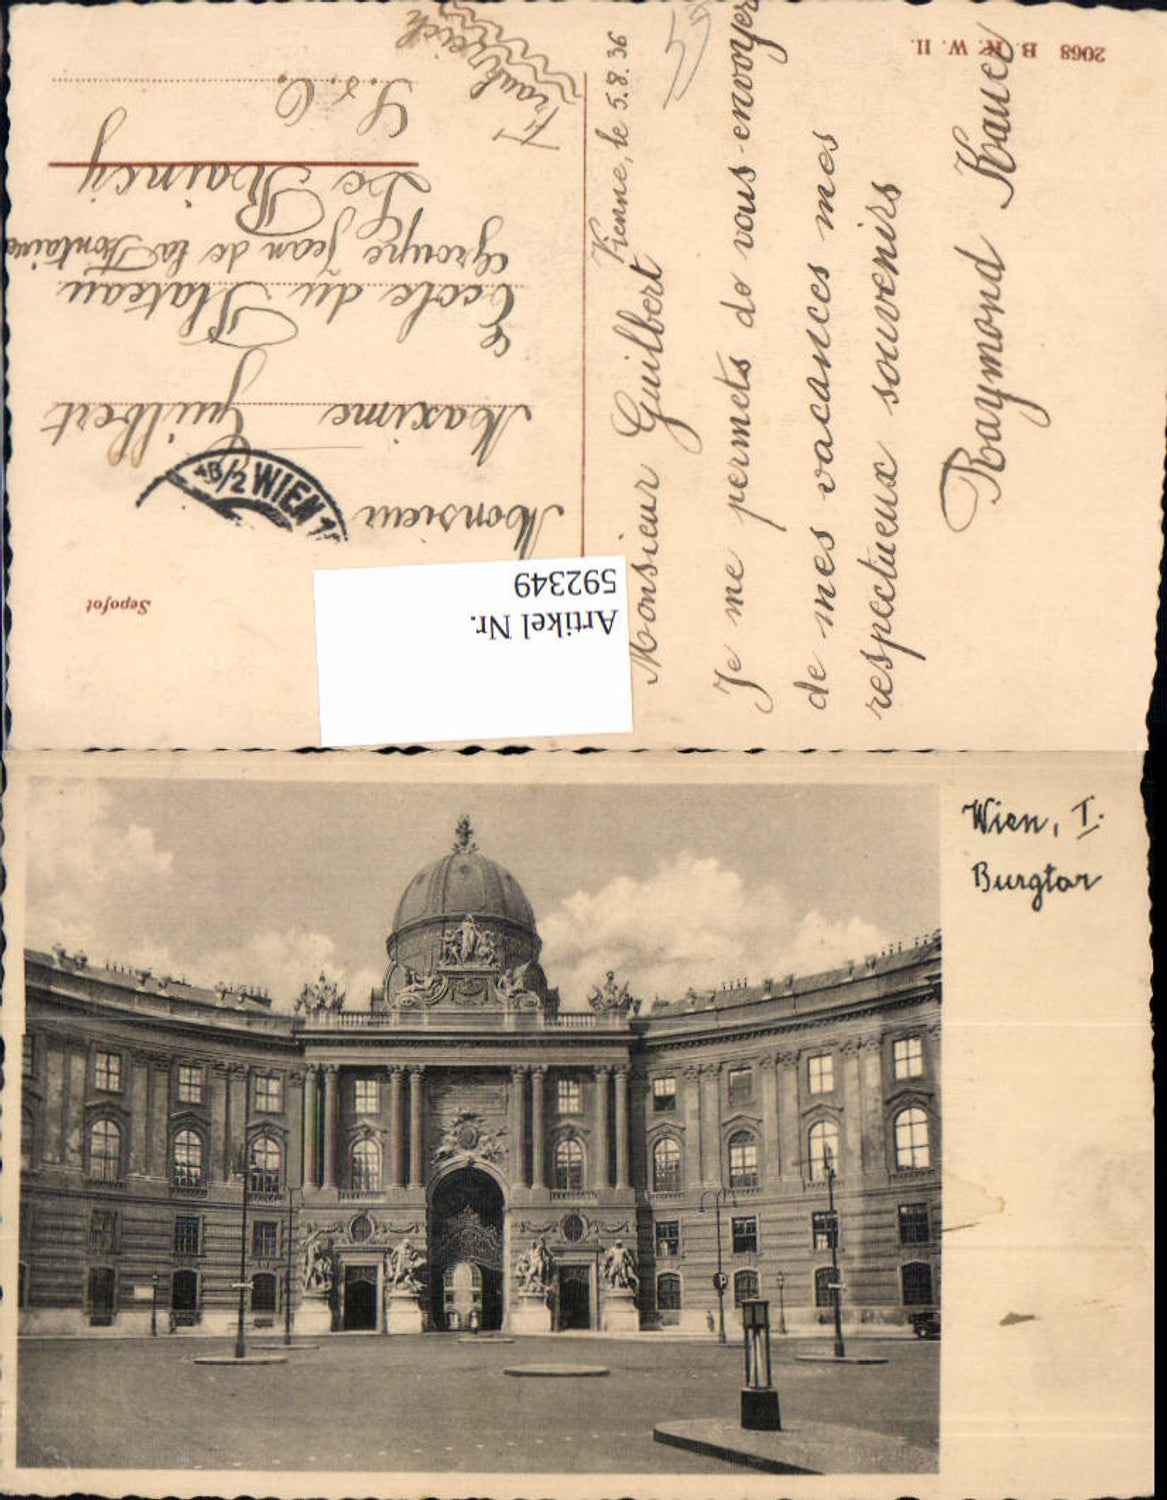 2068 B. K. W. II.
Vienne, le 5.8.36
Monsieur Guilbert
Je me permets de vous envoyer
de mes vacances mes
respectueux souvenirs
Raymond
Monsieur
Maxime Guilbert
École du Plateau
Groupe Jean de la Fontaine
Le Raincy
S. & O.
Frankreich
WIEN 1
Sepofot
Artikel Nr.
592349
Wien, I.
Burgtor